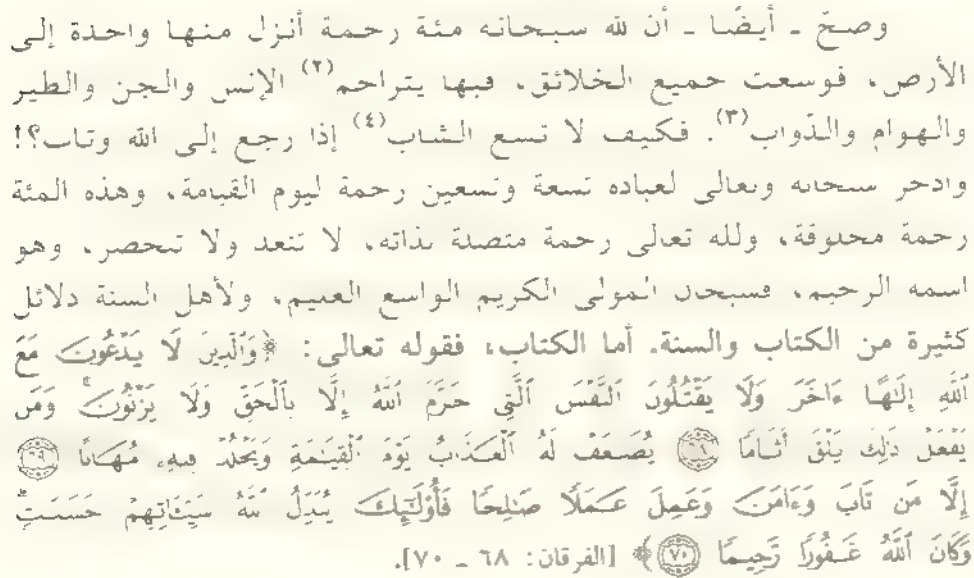 وصحّ ـ أيضًا ـ أن لله سبحانه مئة رحمة أنزل منها واحدة إلى
الأرض، فوسعت جميع الخلائق، فبها يتراحم(٢) الإنس والجن والطير
والهوام والدّواب(٣). فكيف لا تسع الشاب(٤) إذا رجع إلى الله وتاب؟!
وادخر سبحانه وتعالى لعباده تسعة وتسعين رحمة ليوم القيامة، وهذه المئة
رحمة مخلوقة، ولله تعالى رحمة متصلة بذاته، لا تنعد ولا تنحصر، وهو
اسمه الرحيم، فسبحان المولى الكريم الواسع العليم، ولأهل السنة دلائل
كثيرة من الكتاب والسنة. أما الكتاب، فقوله تعالى: ﴿وَٱلَّذِينَ لَا يَدْعُونَ مَعَ
ٱللَّهِ إِلَٰهًا ءَاخَرَ وَلَا يَقْتُلُونَ ٱلنَّفْسَ ٱلَّتِى حَرَّمَ ٱللَّهُ إِلَّا بِٱلْحَقِّ وَلَا يَزْنُونَۚ وَمَن
يَفْعَلْ ذَٰلِكَ يَلْقَ أَثَامًا ۝٦٨ يُضَٰعَفْ لَهُ ٱلْعَذَابُ يَوْمَ ٱلْقِيَٰمَةِ وَيَخْلُدْ فِيهِۦ مُهَانًا ۝٦٩
إِلَّا مَن تَابَ وَءَامَنَ وَعَمِلَ عَمَلًا صَٰلِحًا فَأُو۟لَٰٓئِكَ يُبَدِّلُ ٱللَّهُ سَيِّـَٔاتِهِمْ حَسَنَٰتٍۗ
وَكَانَ ٱللَّهُ غَفُورًا رَّحِيمًا ۝٧٠﴾ [الفرقان: ٦٨ ـ ٧٠].